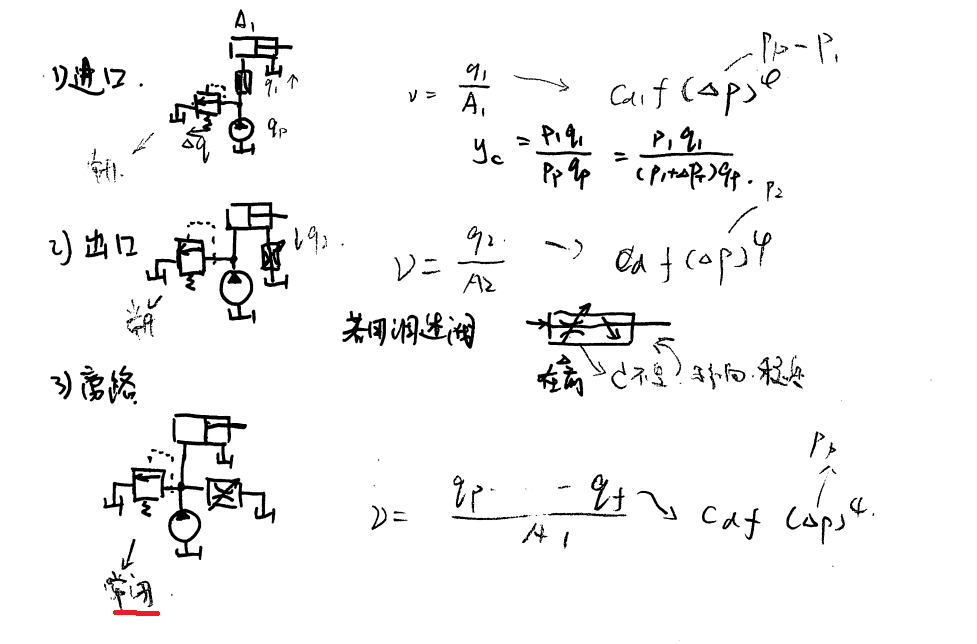 1) 进口.
A₁
q₁ ↑
qₚ
Δq
常开.
v = q₁/A₁ → Cd₁f(Δp)^φ
pₚ-p₁
y_c = p₁q₁/pₚqₚ = p₁q₁/(p₁+Δpₜ)qₚ.
2) 出口
↓q₂.
常开
v = q₂/A₂ → Cdf(Δp)^φ
p₂
若用调速阀
在前 → 不变.
3) 旁路
常闭
v = qₚ - qf/A₁ → Cdf(Δp)^φ.
pₚ